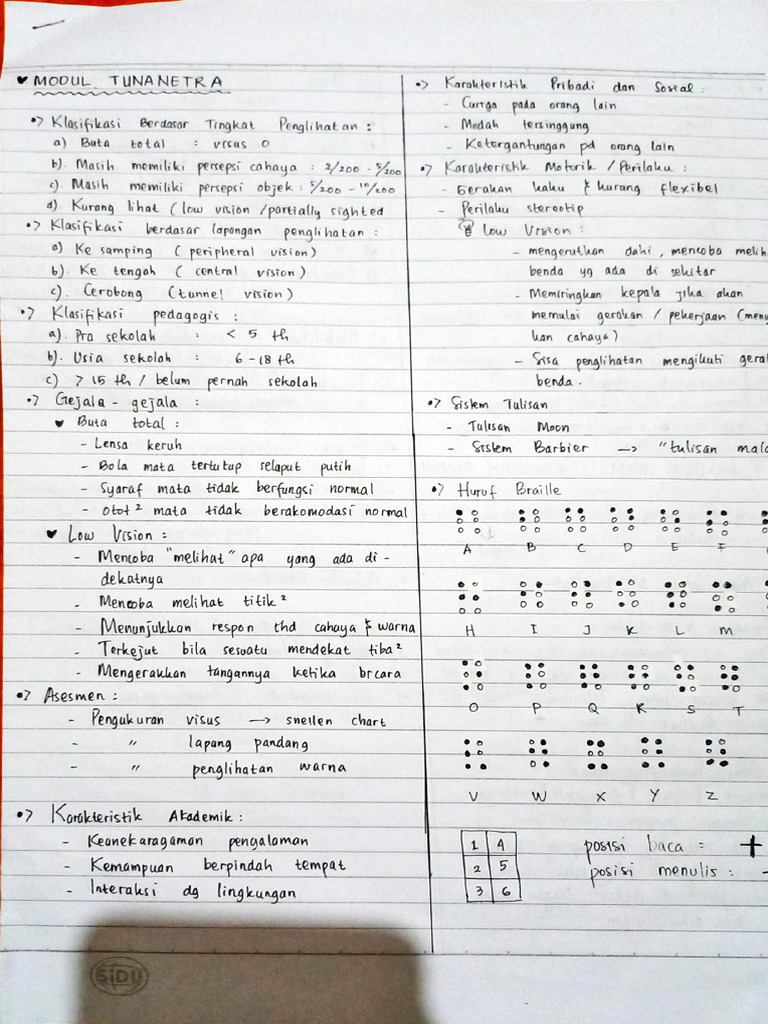 MODUL TUNANETRA
•> Klasifikasi Berdasar Tingkat Penglihatan :
a) Buta total : visus 0
b). Masih memiliki persepsi cahaya : 2/200 - 5/200
c). Masih memiliki persepsi objek : 5/200 - 10/200
d). Kurang lihat (low vision / partially sighted
•> Klasifikasi berdasar lapangan penglihatan :
a) Ke samping (peripheral vision)
b). Ke tengah (central vision)
c). Cerobong (tunnel vision)
•> Klasifikasi pedagogis :
a). Pra sekolah : < 5 th
b). Usia sekolah : 6 - 18 th
c) > 15 th / belum pernah sekolah
•> Gejala - gejala :
Buta total :
- Lensa keruh
- Bola mata tertutup selaput putih
- Syaraf mata tidak berfungsi normal
- Otot² mata tidak berakomodasi normal
Low Vision :
- Mencoba "melihat" apa yang ada di -
dekatnya
- Mencoba melihat titik²
- Menunjukkan respon thd cahaya & warna
- Terkejut bila sesuatu mendekat tiba²
- Mengerakkan tangannya ketika brcara
•> Asesmen :
- Pengukuran visus → snellen chart
- " lapang pandang
- " penglihatan warna
•> Karakteristik Akademik :
- Keanekaragaman pengalaman
- Kemampuan berpindah tempat
- Interaksi dg lingkungan
•> Karakteristik Pribadi dan Sosial :
- Curiga pada orang lain
- Mudah tersinggung
- Ketergantungan pd orang lain
•> Karakteristik Motorik / Perilaku :
- Gerakan kaku & kurang flexibel
- Perilaku stereotip
Low Vision :
- mengerutkan dahi, mencoba melih
benda yg ada di sekitar
- Memiringkan kepala jika akan
memulai gerakan / pekerjaan (menu
kan cahaya)
- Sisa penglihatan mengikuti gera
benda.
•> Sistem Tulisan
- Tulisan Moon
- Sistem Barbier → "tulisan mala
•> Huruf Braille
A B C D E F
H I J K L M
O P Q R S T
V W X Y Z
1 4
2 5
3 6
posisi baca : +
posisi menulis : -
SiDU